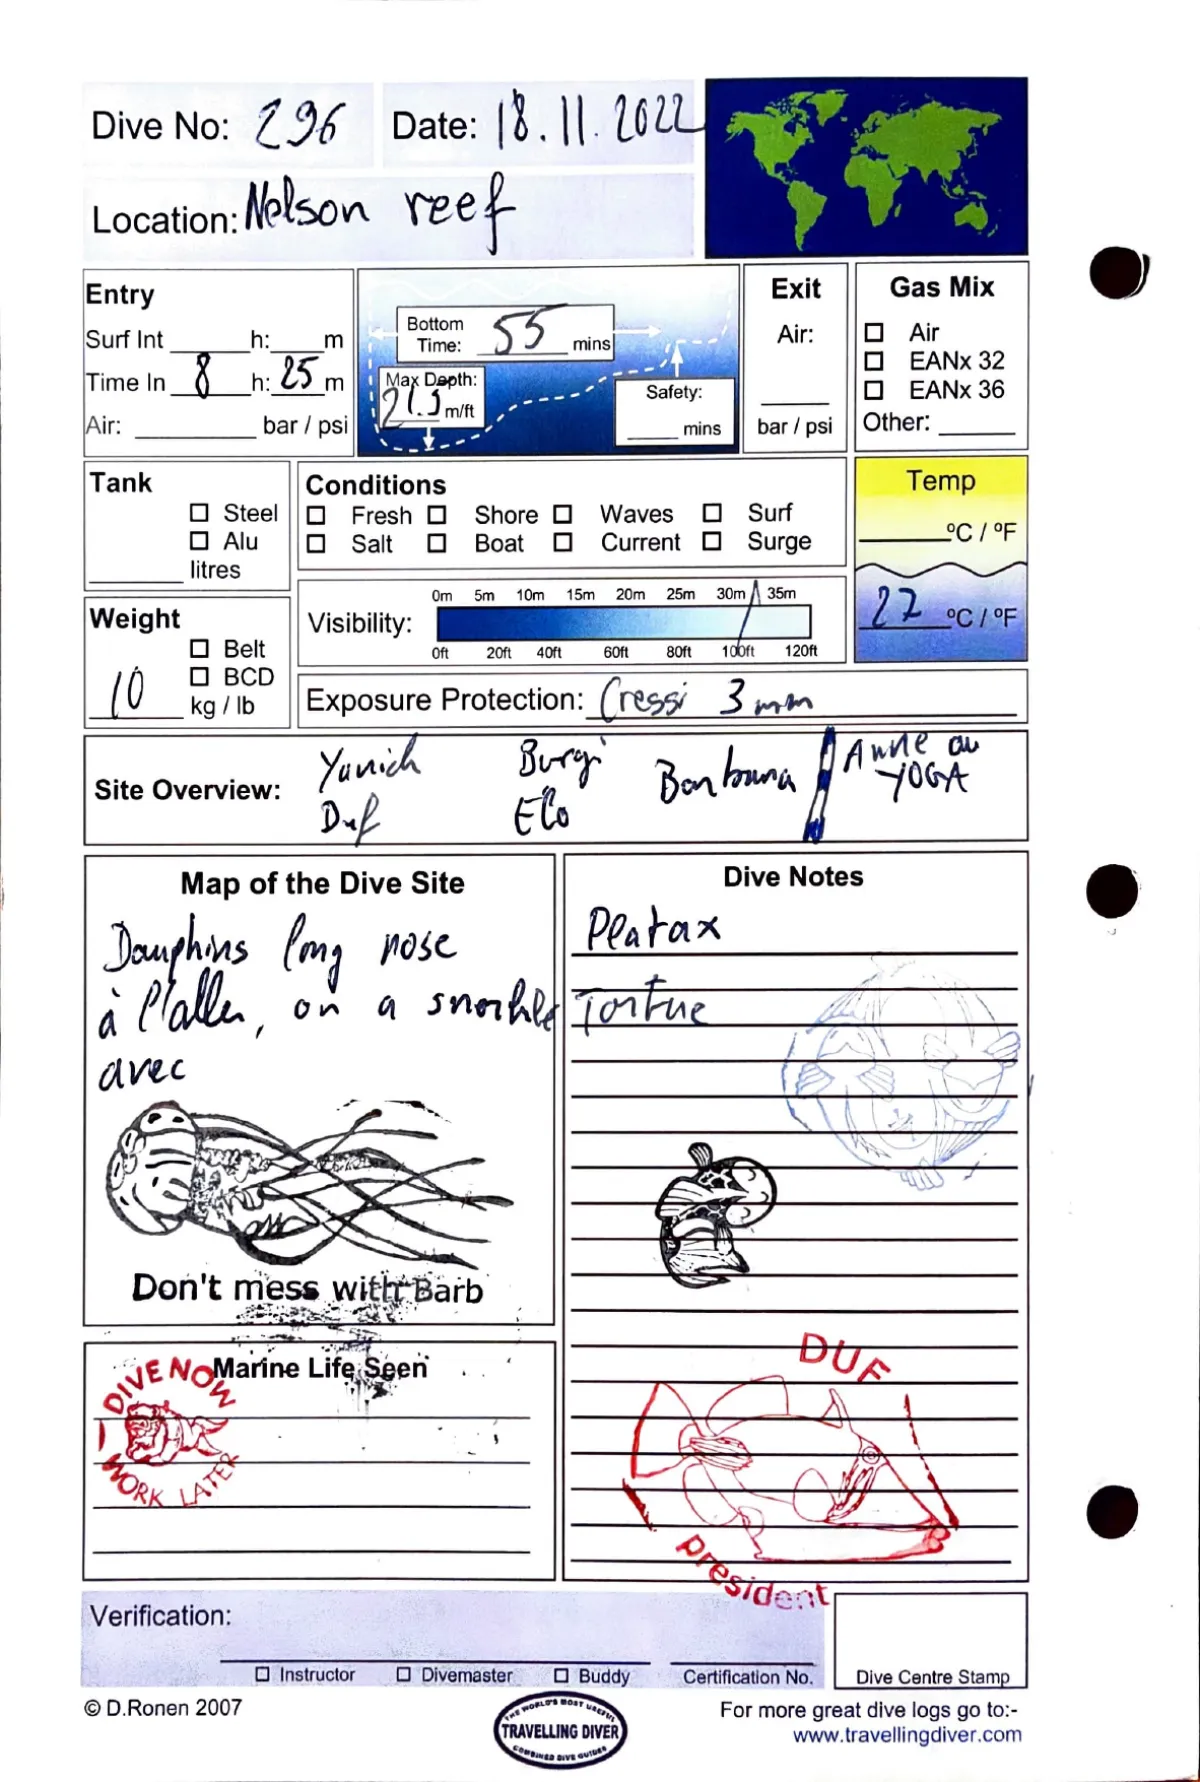 Dive No: 296
Date: 18.11.2022
Location: Nelson reef
Entry
Surf Int ____ h: ____ m
Time In 8 h: 25 m
Air: ____ bar / psi
Bottom Time: 55 mins
Max Depth: 21.5 m/ft
Safety: ____ mins
Exit
Air:
____
bar / psi
Gas Mix
☐ Air
☐ EANx 32
☐ EANx 36
Other: ____
Tank
☐ Steel
☐ Alu
____ litres
Conditions
☐ Fresh ☐ Shore ☐ Waves ☐ Surf
☐ Salt ☐ Boat ☐ Current ☐ Surge
Temp
____ °C / °F
27 °C / °F
Weight
☐ Belt
☐ BCD
10 kg / lb
0m 5m 10m 15m 20m 25m 30m 35m
Visibility:
0ft 20ft 40ft 60ft 80ft 100ft 120ft
Exposure Protection: Cressi 3 mm
Site Overview:
Yanich Burgi Barbara Anne au
Duf Elo YOGA
Map of the Dive Site
Dauphins long nose
à l'aller, on a snorkle
avec
Don't mess with Barb
Dive Notes
Platax
Tortue
Marine Life Seen
DIVE NOW
WORK LATER
DUF
president
Verification:
☐ Instructor ☐ Divemaster ☐ Buddy Certification No.
Dive Centre Stamp
© D.Ronen 2007
THE WORLD'S MOST USEFUL
TRAVELLING DIVER
COMBINED DIVE GUIDES
For more great dive logs go to:-
www.travellingdiver.com